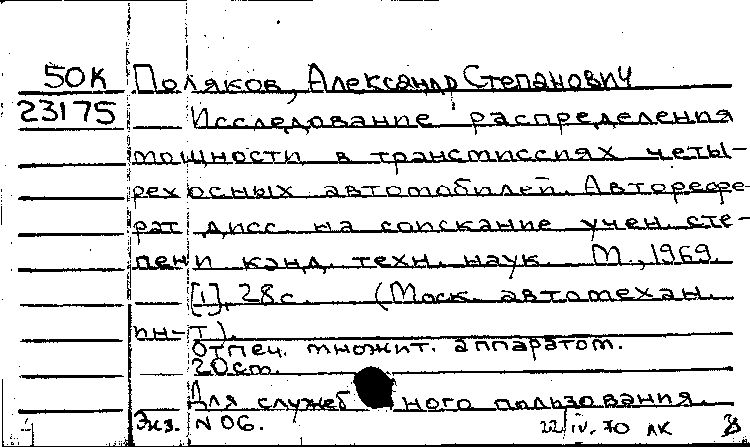 50К Поляков, Александр Степанович
23175 Исследование распределения
мощности в трансмиссиях четы-
рехосных автомобилей. Авторефе-
рат дисс. на соискание учен. сте-
пени канд. техн. наук. М., 1969.
[1], 28с. (Моск. автомехан.
ин-т).
Отпеч. множит. аппаратом.
20ст.
Для служебного пользования.
Экз. N 06. 22/IV.70 ЛК